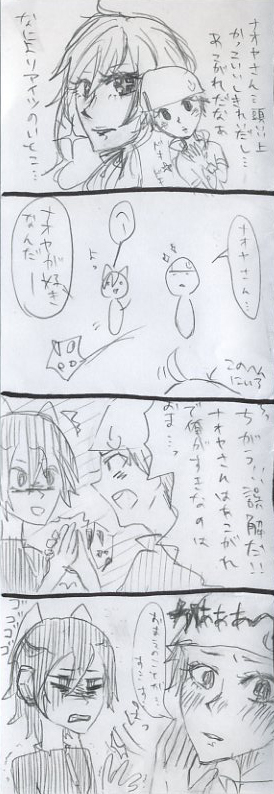 ナオヤさんは頭いい上
かっこいいしきれいだし…
あこがれだなぁ
なによりアイツのいとこ…
ドキ
ドキ
ナオヤさん…
よっ
ナオヤが好き
なんだー
このへん
にいる
ちがう!!誤解だ!!
ナオヤさんはあこがれ
で俺がすきなのは
おま…っ
ゴゴゴゴ